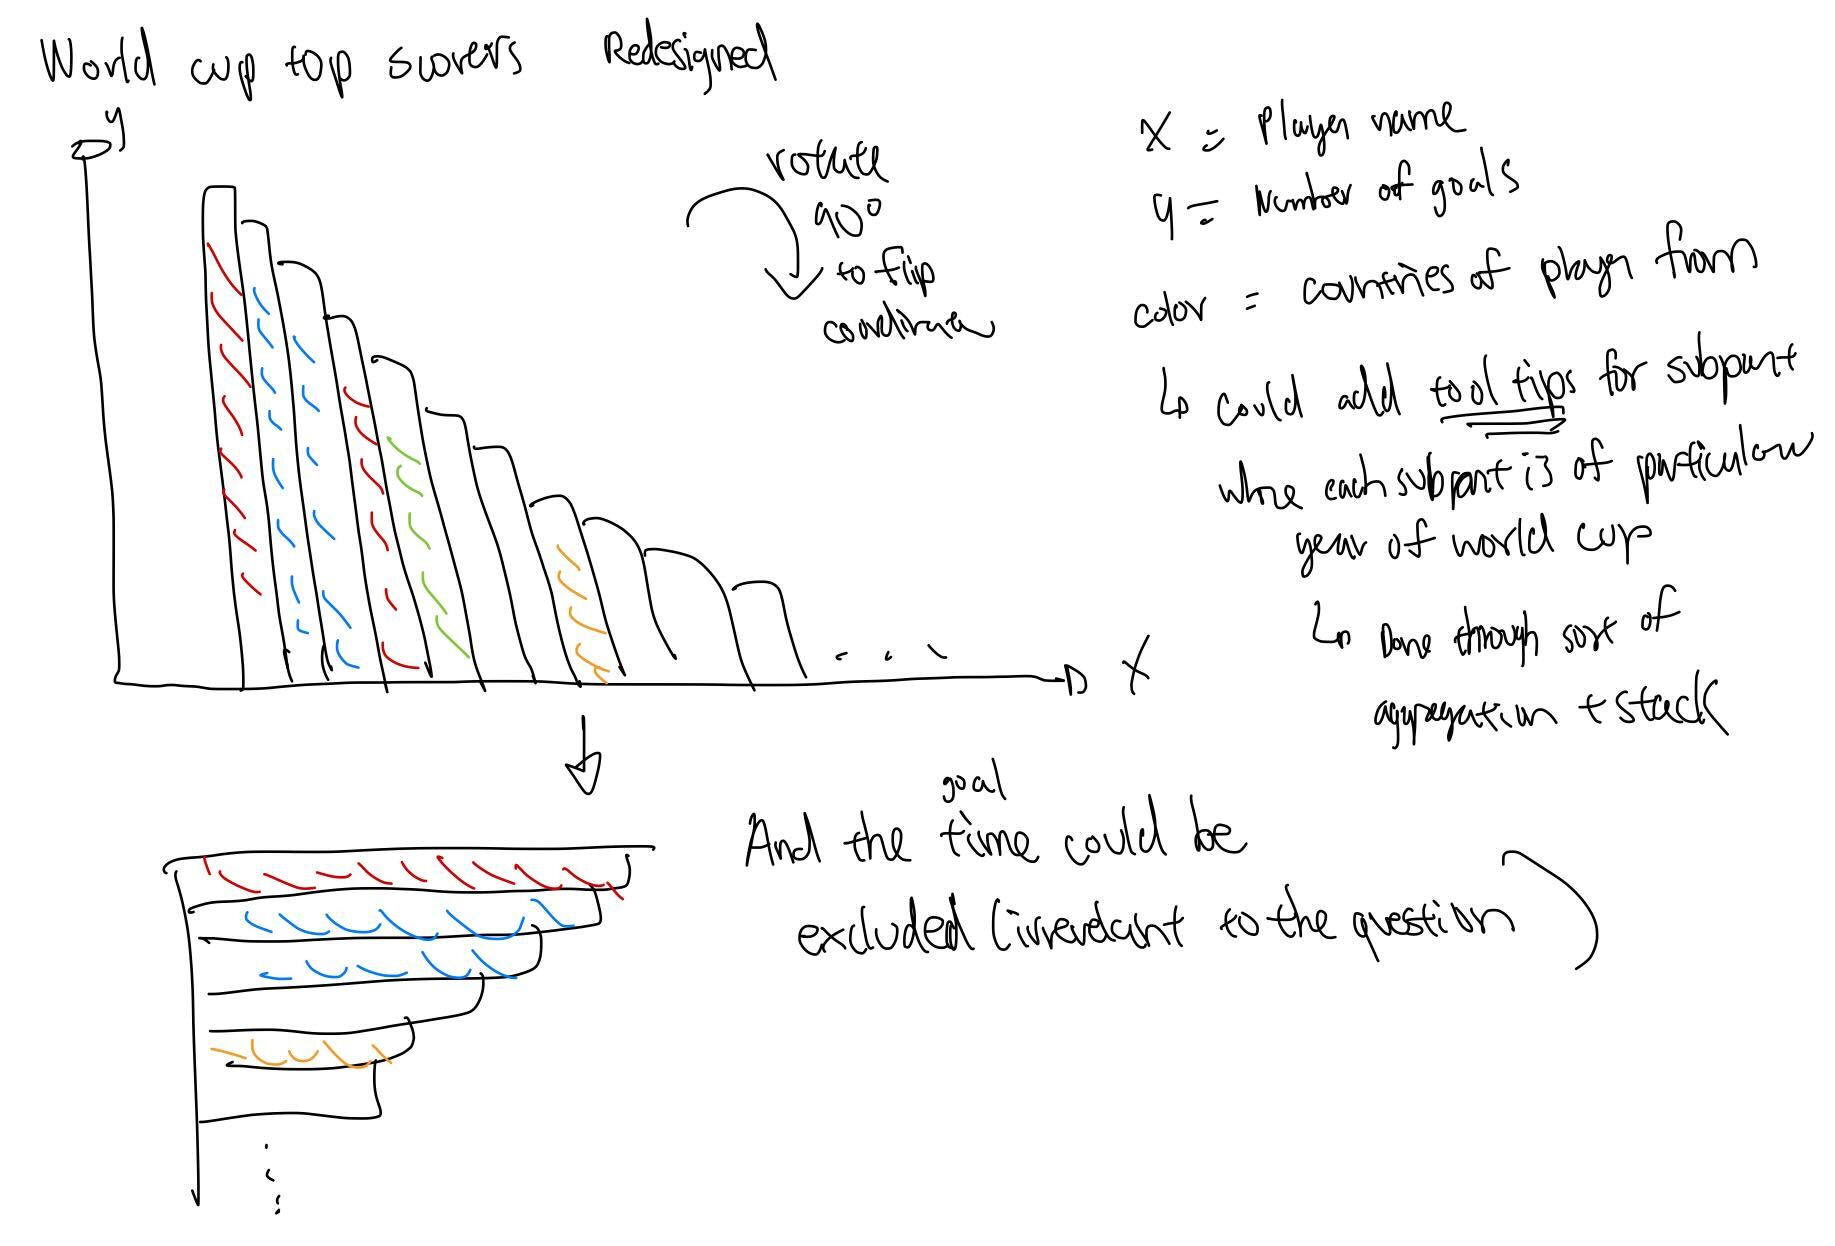 World cup top scorers Redesigned
y
rotate
90°
to flip
coordinate
X = Player name
y = Number of goals
color = countries of player from
↳ could add tool tips for subpart
where each subpart is of particular
year of world cup
↳ Done through sort of
aggregation + stack
X
goal
And the time could be
excluded (irrevelant to the question)